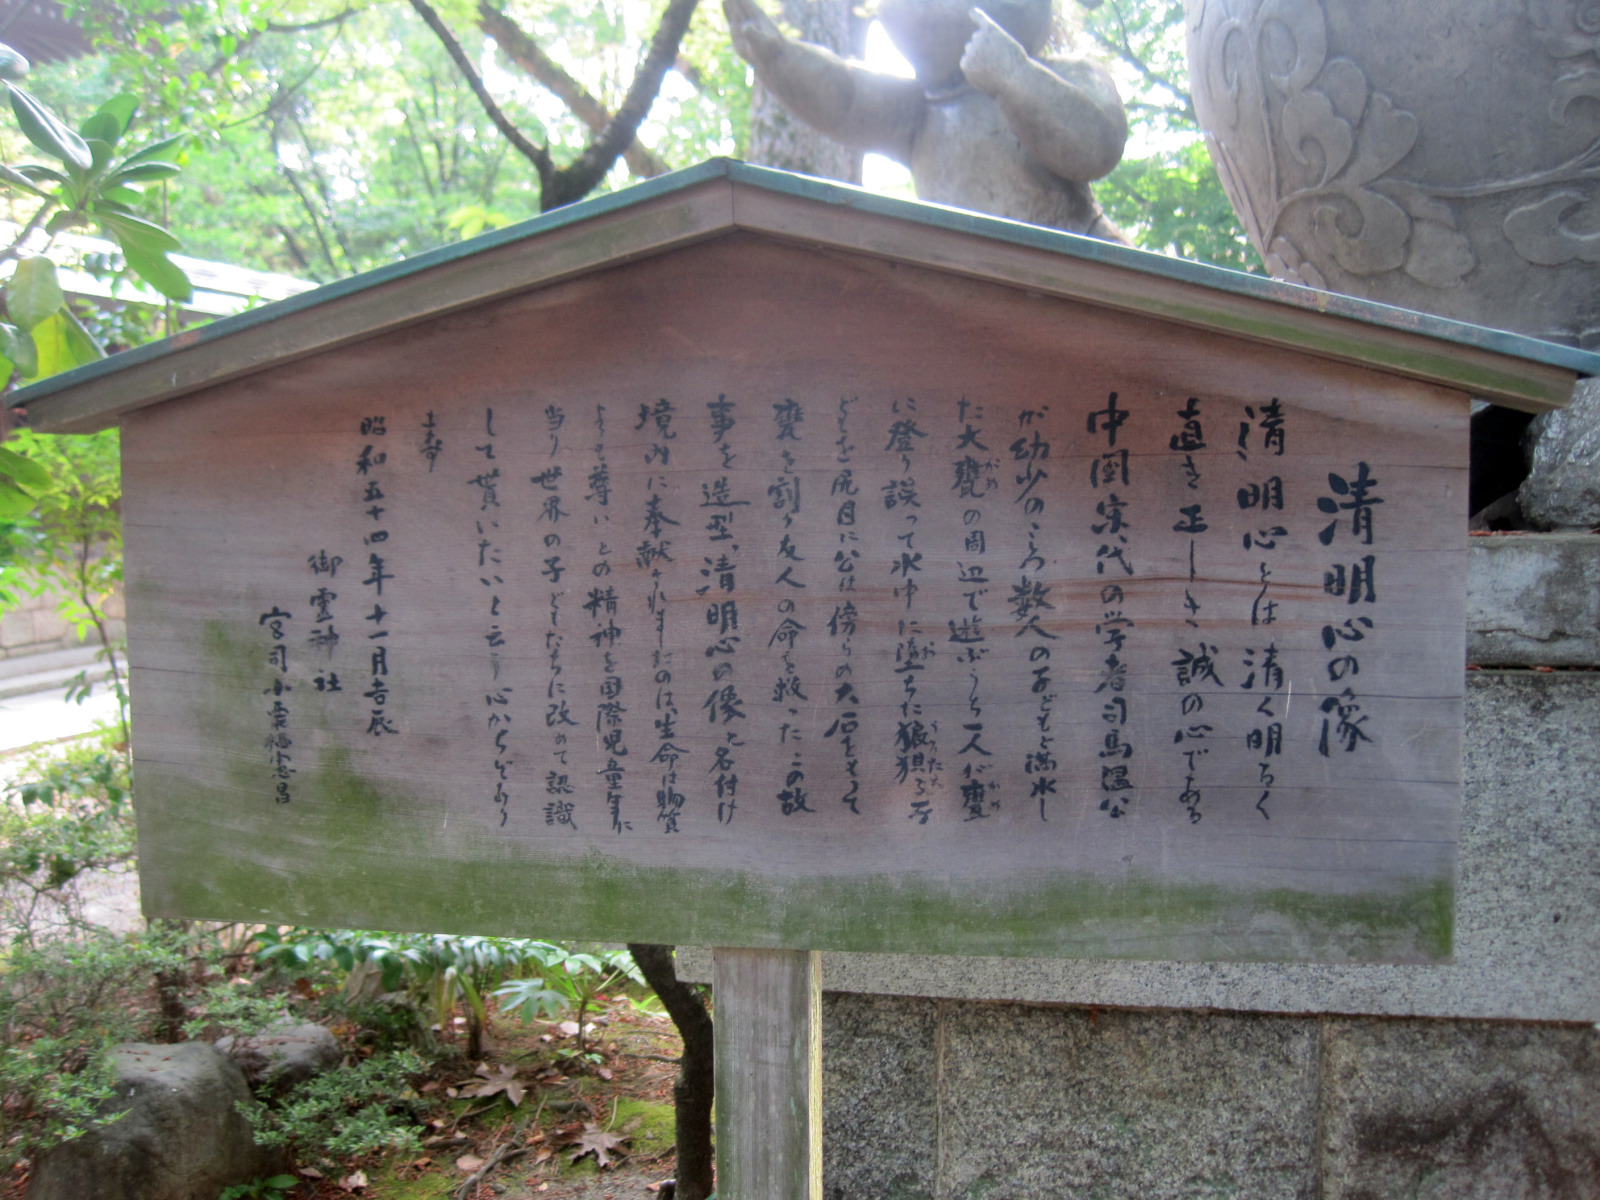 清明心の像
清明心とは清く明るく
直き正しき誠の心である
中国宋代の学者司馬温公
が幼少のころ数人の子どもと満水し
た大甕の周辺で遊ぶうち一人が甕
がめ
かめ
に登り誤って水中に堕ちた狼狽する子
お
うろたえ
どもを尻目に公は傍らの大石をもって
甕を割り友人の命を救ったこの故
事を造型、清明心の像と名付け
境内に奉献されましたのは、生命は物質
よりも尊いとの精神を国際児童年に
当り世界の子どもたちに改めて認識
して貰いたいと云う心からであり
ます
昭和五十四年十一月吉辰
御霊神社
宮司小栗栖忠昌